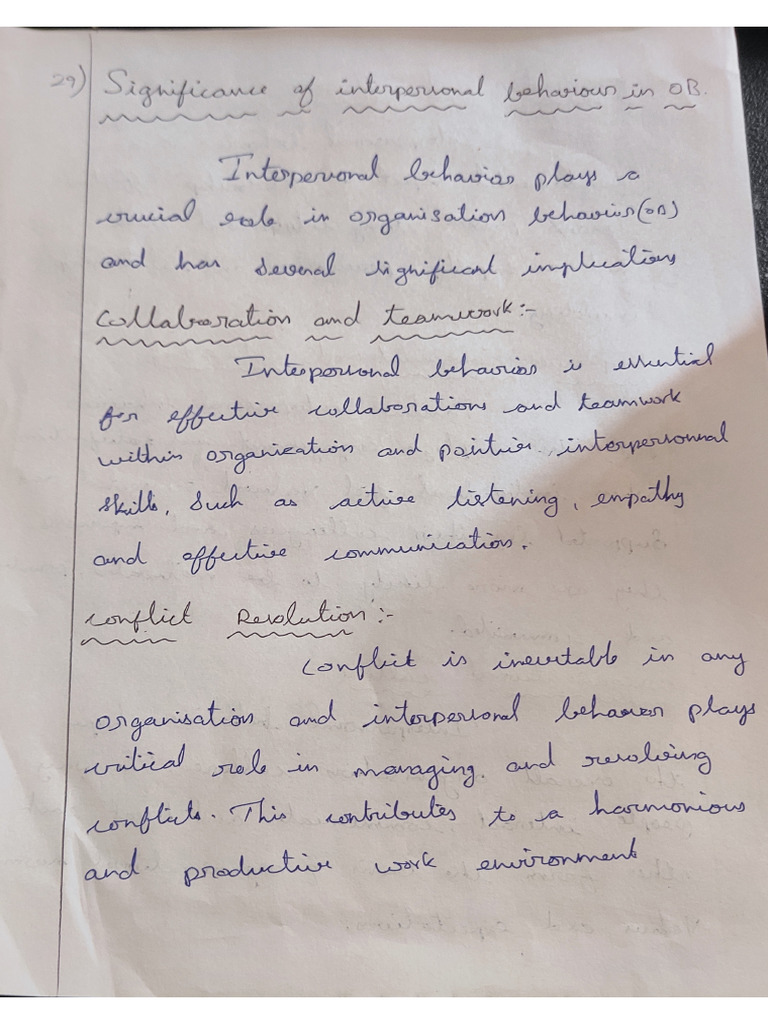 29) Significance of interpersonal behaviour in OB.
Interpersonal behavior plays a
crucial role in organisation behavior(OB)
and has several significant implications
Collaboration and teamwork:-
Interpersonal behavior is essential
for effective collaborations and teamwork
within organization and positive interpersonnal
skills, such as active listening, empathy
and effective communication.
Conflict Resolution:-
Conflict is inevitable in any
organisation and interpersonal behavior plays
critical role in managing and resolving
conflicts. This contributes to a harmonious
and productive work environment